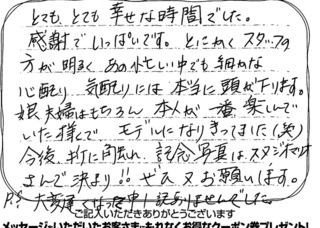 とても、とても 幸せな時間でした。
感謝でいっぱいです。とにかく スタッフの
方が 明るく あの忙しい中でも 細かな
心配り 気配りには 本当に 頭が下ります。
娘夫婦はもちろん 本人が 一番 楽しんで
いた様で モデルになりきってました(笑)
今後、折に触れ、記念写真はスタジオマリオ
さんで 決まり!! ぜひ又 お願いします。
P.S 大変遅くなって申し訳ありませんでした。
ご記入いただきありがとうございます
メッセージをいただいたお客さまにもれなくお得なクーポン券プレゼント!